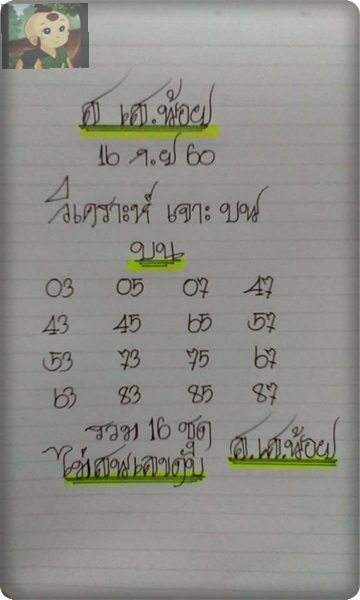 ส เส.น้อย
16 ก.ย 60
วิเคราะห์ เจาะ บน
บน
03 05 07 47
43 45 65 57
53 73 75 67
63 83 85 87
รวม 16 ชุด
ส.เส.น้อย